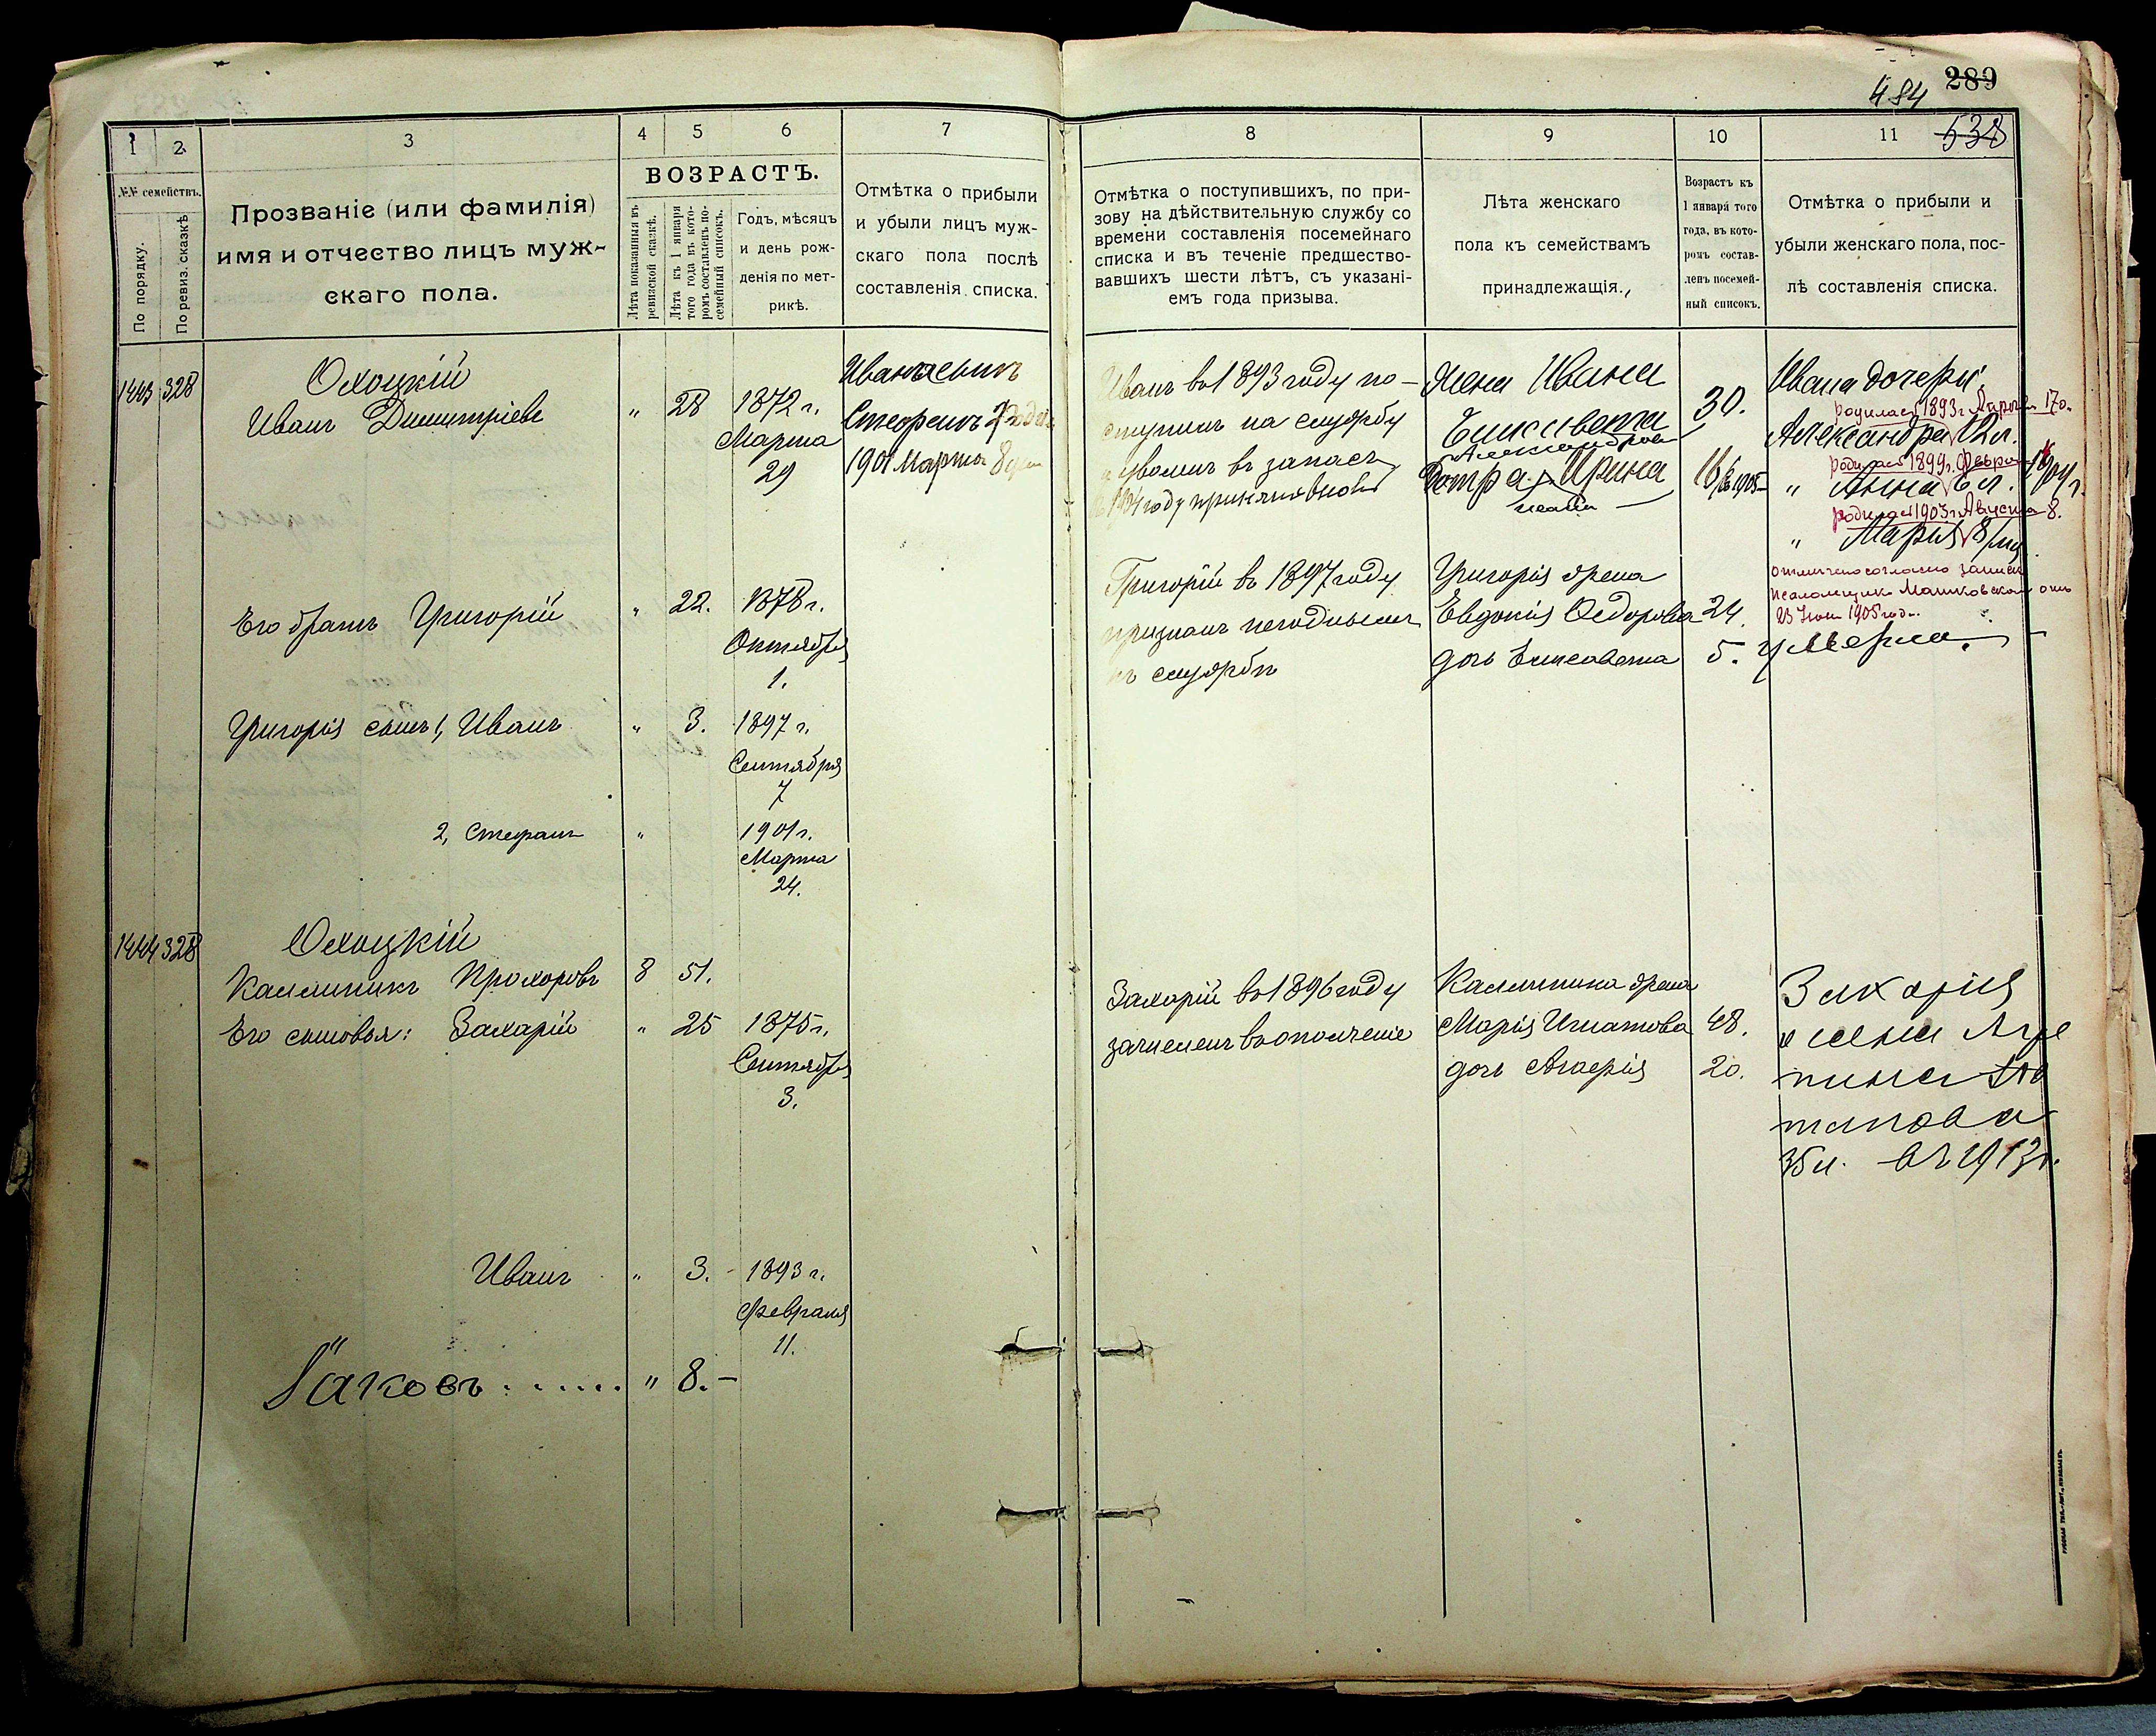 289
484
538
1
2
3
4
5
6
7
8
9
10
11
№№ семействъ.
По порядку.
По ревиз. сказкѣ
Прозваніе (или фамилія)
имя и отчество лицъ муж-
скаго пола.
ВОЗРАСТЪ.
Лѣта показанныя въ
ревизской сказкѣ.
Лѣта къ 1 января
того года въ кото-
ромъ составленъ по-
семейный списокъ.
Годъ, мѣсяцъ
и день рож-
денія по мет-
рикѣ.
Отмѣтка о прибыли
и убыли лицъ муж-
скаго пола послѣ
составленія списка.
Отмѣтка о поступившихъ, по при-
зову на дѣйствительную службу со
времени составленія посемейнаго
списка и въ теченіе предшество-
вавшихъ шести лѣтъ, съ указані-
емъ года призыва.
Лѣта женскаго
пола къ семействамъ
принадлежащія.
Возрастъ къ
1 января того
года, въ кото-
ромъ состав-
ленъ посемей-
ный списокъ.
Отмѣтка о прибыли и
убыли женскаго пола, пос-
лѣ составленія списка.
1443 328
Охоцкій
Иванъ Димитріевъ
" 28 1872 г.
Марта
29
Ивана сынъ
Стефанъ
1901 Марта 8
Иванъ въ 1893 году по-
ступилъ на службу
уволенъ въ запасъ
Жена Ивана
Елисавета
Александрова
30.
Сестра Ирина
16
Ивана дочери:
родилась 1893 г. Апрѣля 17 д.
Александра 12 л.
родилась 1899 г. Февраля
" Анна 6 л.
родилась 1903 г. Августа 8.
" Марія 8
отмѣчено согласно записки
псаломщика
23 1905 года.
Его братъ Григорій
" 22. 1878 г.
Октября
1.
Григорій въ 1897 году
признанъ негоднымъ
къ службѣ
Григорія жена
Евдокія Ѳедорова 24.
дочь Елисавета 5. умерла.
Григорія сынъ 1, Иванъ
" 3. 1897 г.
Сентября
7
2, Стефанъ
" 1901 г.
Марта
24.
1444 328
Охоцкій
Каллиникъ Прохоровъ 8 51.
Его сыновья: Захарій " 25 1875 г.
Сентября
3.
Захарій въ 1896 году
зачисленъ въ ополченіе
Каллиника жена
Марія Игнатова 48.
дочь Гликерія 20.
Захарія
жена Агре
пина
35 л. въ 1913 г.
Иванъ " 3. 1893 г.
Февраля
11.
Яковъ..... " 8. –